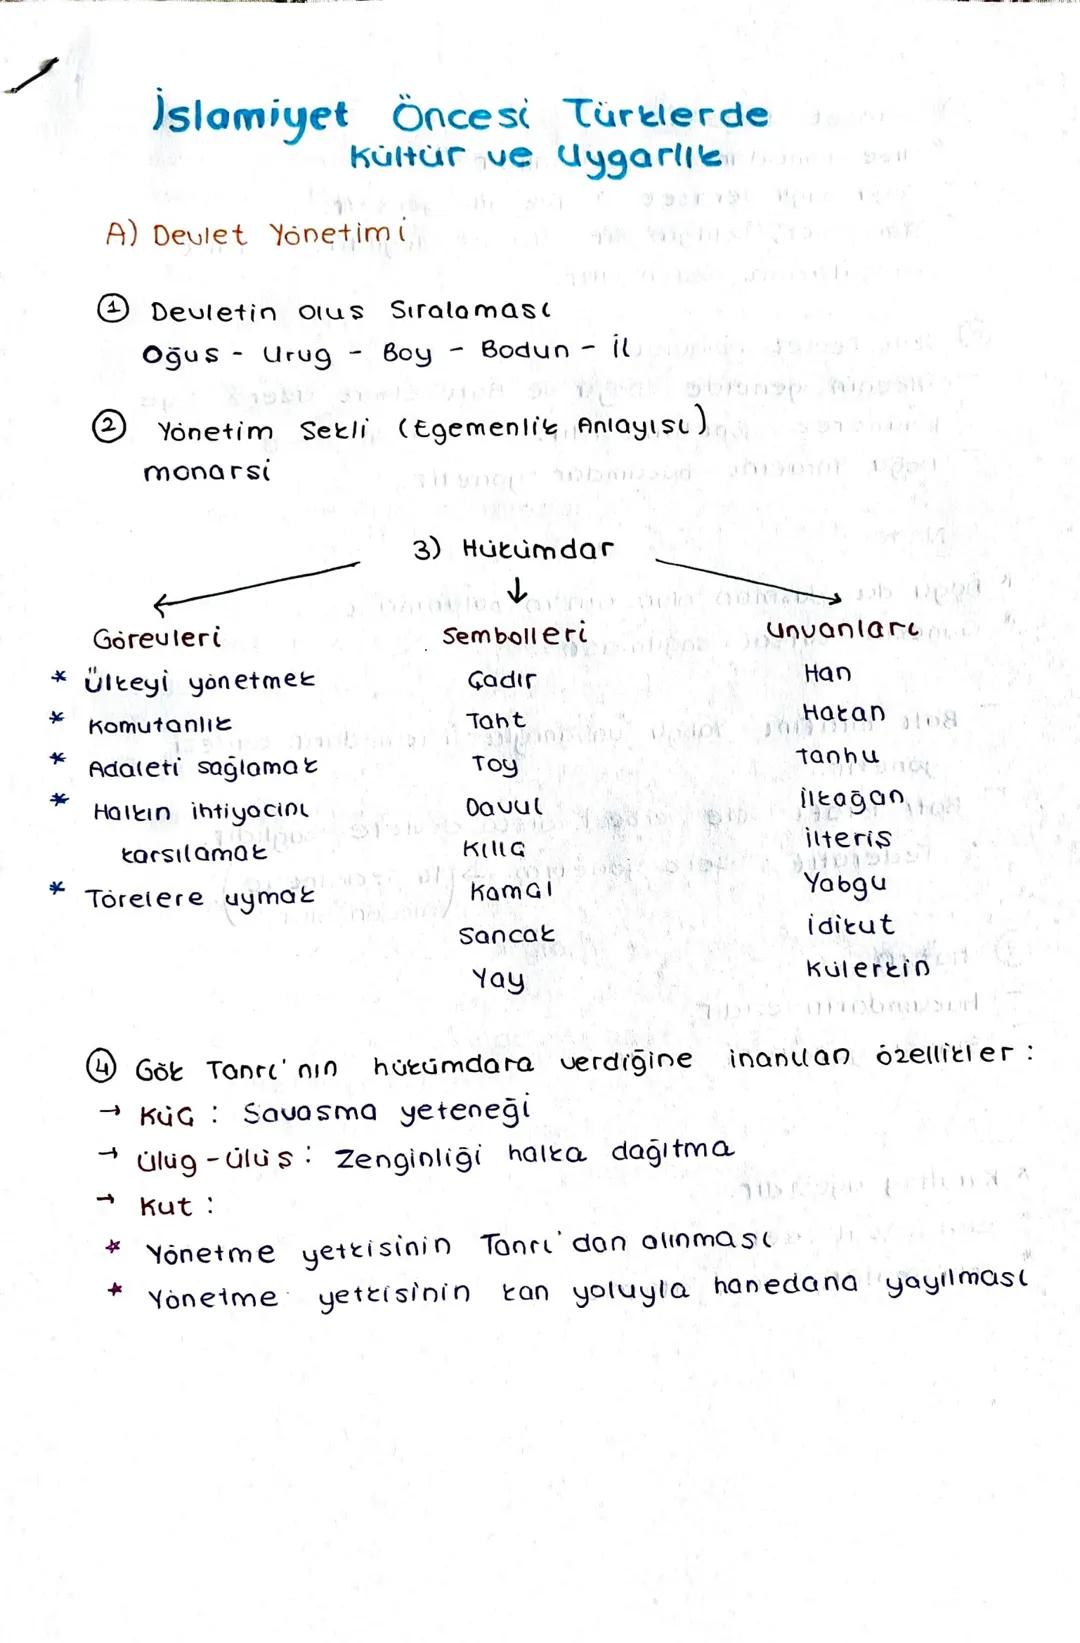 İslamiyet Öncesi Türklerde
Kültür ve Uygarlık
A) Devlet Yönetimi
1 Devletin Olus Sıralaması
Oğus - Urug - Boy - Bodun - İl
2 Yönetim Sekli (Egemenlik Anlayısı)
monarsi
3) Hükümdar
Görevleri
* Ülkeyi yönetmek
* Komutanlık
* Adaleti sağlamak
* Halkın ihtiyacını
karsılamak
* Törelere uymak
Sembolleri
Çadır
Taht
Toy
Davul
Kılıç
Kamçı
Sancak
Yay
Unvanları
Han
Hakan
Tanhu
İlkağan
İlteriş
Yabgu
İdikut
Külerkin
4 Gök Tanrı'nın hükümdara verdiğine inanılan özellikler :
→ Küç : Savasma yeteneği
→ Ülüg - ülüş : Zenginliği halka dağıtma
→ Kut :
* Yönetme yetkisinin Tanrı'dan alınması
* Yönetme yetkisinin kan yoluyla hanedana yayılması